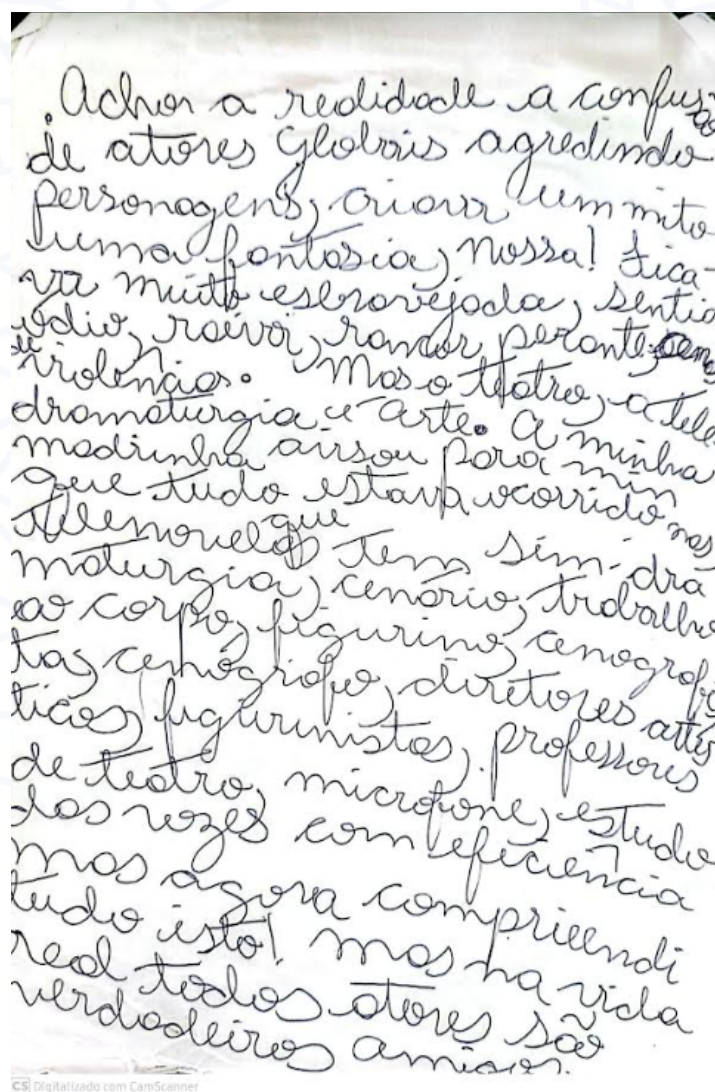 Achar a realidade a confusão
de atores globais agredindo
personagens, criava um mito
uma fantasia, nossa! Fica-
va muito esbravejada, sentia
ódio, raiva, rancor perante
de violências. Mas o teatro, a tele
dramaturgia é arte. A minha
madrinha avisou para min
que tudo estava ocorrido nas
telenovelas que tem sim dra
maturgia, cenário, trabalho
ao corpo, figurino, cenógrafis
tas, cenógrafo, diretores artís
ticos, figurinistas, professores
de teatro, microfone, estudo
das vozes com eficiência
mas agora compreendi
tudo isto! mas na vida
real todos atores são
verdadeiros amigos.
CS Digitalizado com CamScanner